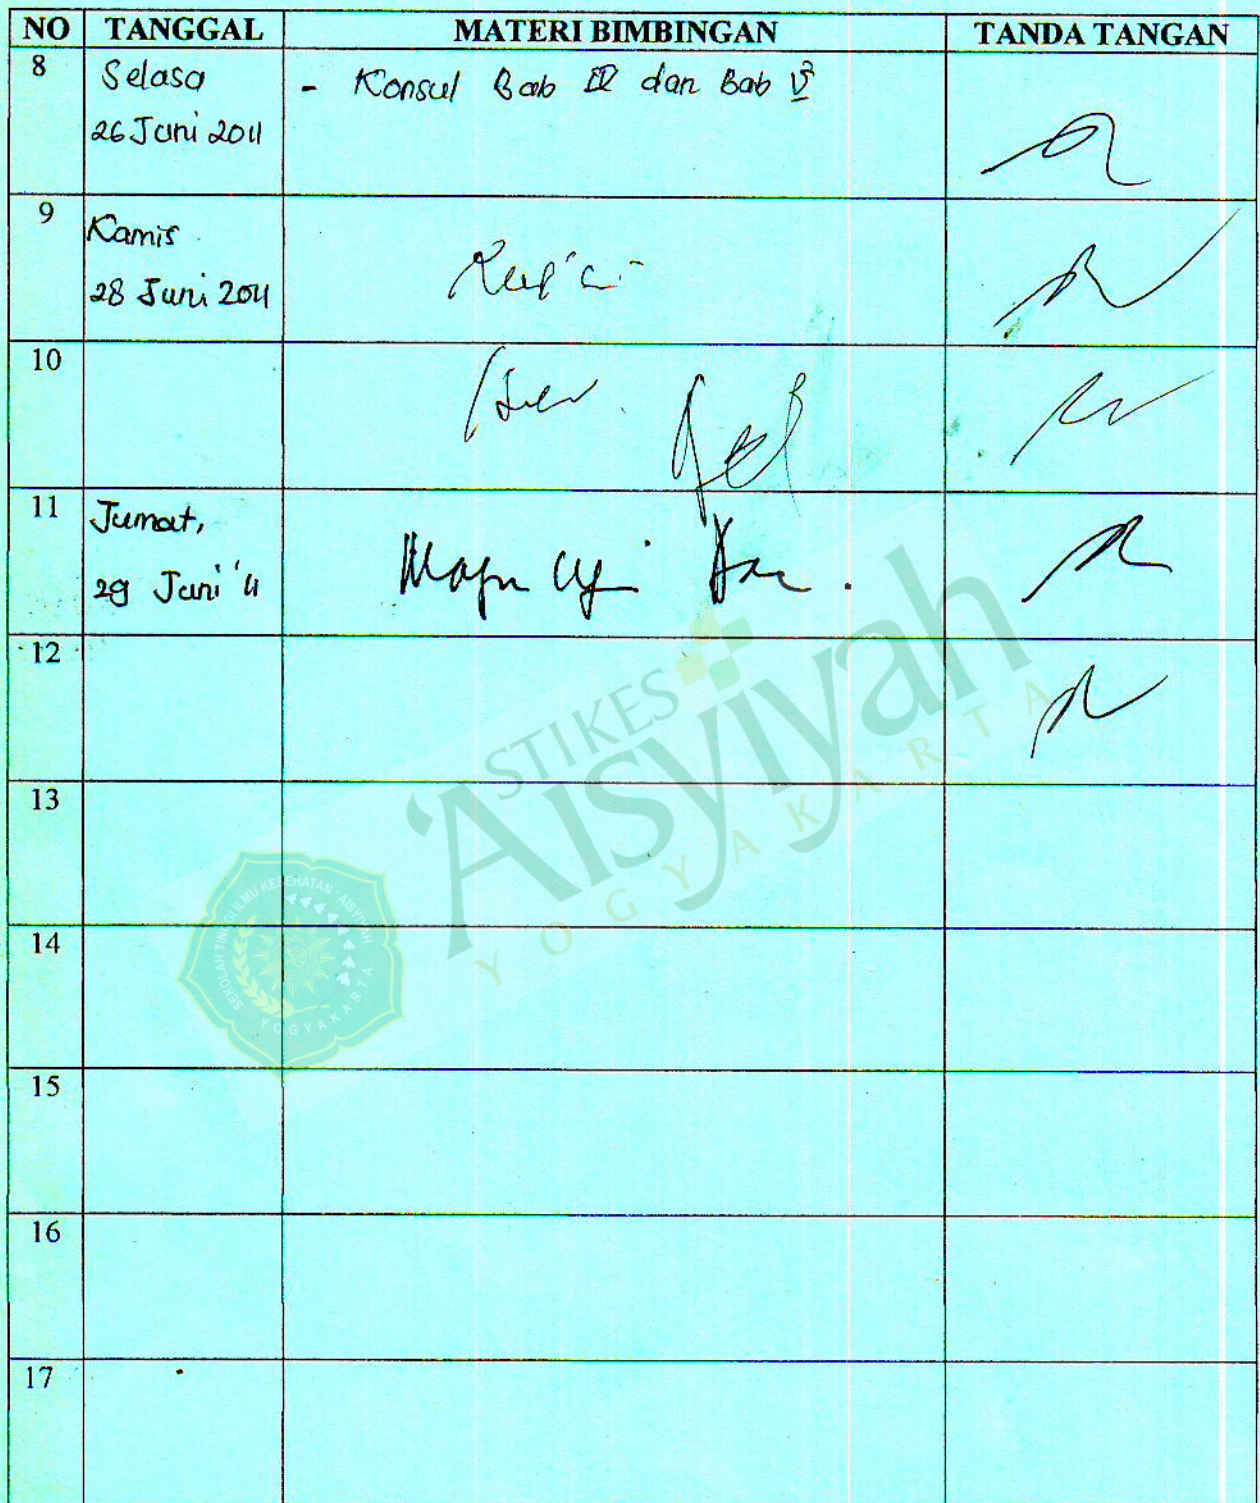 NO TANGGAL MATERI BIMBINGAN TANDA TANGAN
8 Selasa - Konsul Bab IV dan Bab V
26 Juni 2011
9 Kamis
28 Juni 2011
10
11 Jumat,
29 Juni '11 Maju Uji
12
13
14
15
16
17
STIKES
'Aisyiyah
YOGYAKARTA
SEKOLAH TINGGI ILMU KESEHATAN 'AISYIYAH
YOGYAKARTA